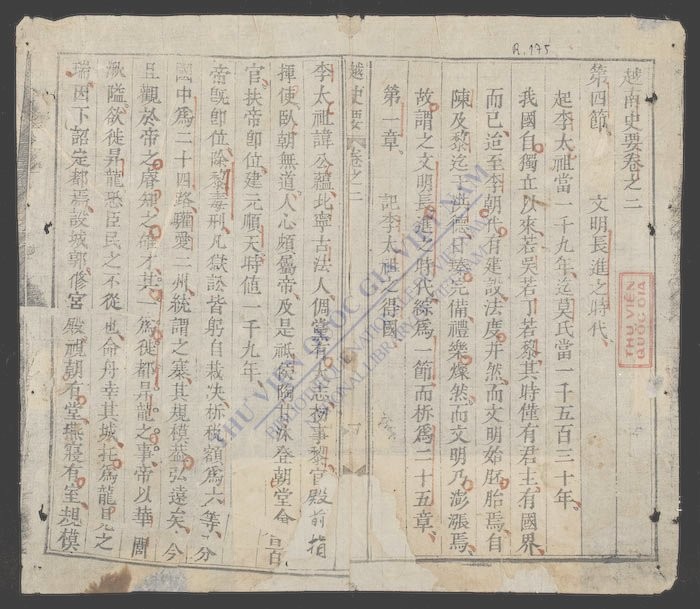 R.175
越南史要卷之二
第四節 文明長進之時代、
起李太祖當一千九年、迄莫氏當一千五百三十年、
我國自獨立以來、若吳若丁若黎、其時僅有君主有國界、
而已、迨至李朝、代有建設、法度井然、而文明始胚胎焉、自
陳及黎、迄 洪德、日臻完備、禮樂燦然、而文明乃澎漲焉、
故謂之文明長進之時代、綜爲一節、而析爲二十五章、
第一章 記李太祖之得國
越史要 卷之二
李太祖諱公蘊、北寧古法人、倜儻有大志、初事黎、官殿前指
揮使、臥朝無道、人心頗屬帝、及是祗 陶甘沐登朝堂、會百
官、扶帝卽位、建元順天、時值一千九年、
帝旣卽位、除黎毒刑、凡獄訟皆躬自裁決、析稅額爲六等、分
國中爲二十四路、驩愛二州、統謂之寨、其規模蓋弘遠矣、今
且觀於帝之睿知之雄才、其一爲徙都昇龍之事、帝以華閭
湫隘、欲徙昇龍、恐臣民之不從也、命舟幸其城、托爲龍見之
瑞、因下詔定都焉、設城郭、修宮殿、視朝有堂、燕寢有室、規模
THƯ VIỆN
QUỐC GIA
THƯ VIỆN QUỐC GIA VIỆT NAM
BIBLIOTHÈQUE NATIONALE DU VIETNAM
NATIONAL LIBRARY OF VIETNAM